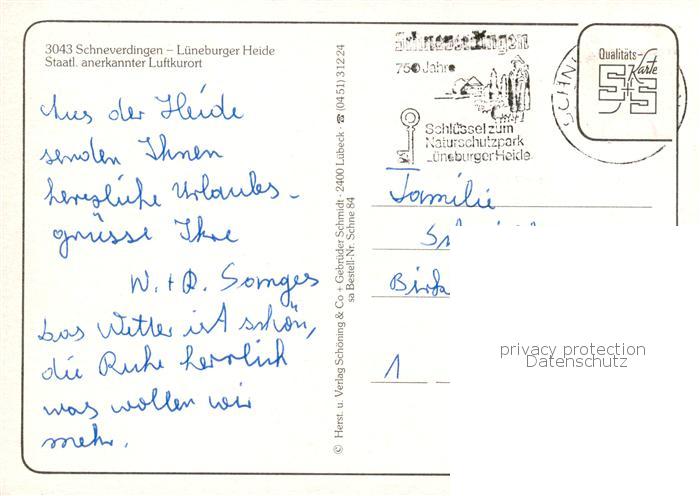 3043 Schneverdingen – Lüneburger Heide
Staatl. anerkannter Luftkurort
Aus der Heide
senden Ihnen
herzliche Urlaubs-
grüsse Ihre
W. + D. Somges
Das Wetter ist schön,
die Ruhe herrlich
was wollen wir
mehr.
© Herst. u. Verlag Schöning & Co + Gebrüder Schmidt · 2400 Lübeck · ☎ (04 51) 3 12 24
sa Bestell-Nr. Schne S4
Schneverdingen
750 Jahre
Schlüssel zum
Naturschutzpark
Lüneburger Heide
Qualitäts-
Karte
S+S
Familie
1
privacy protection
Datenschutz